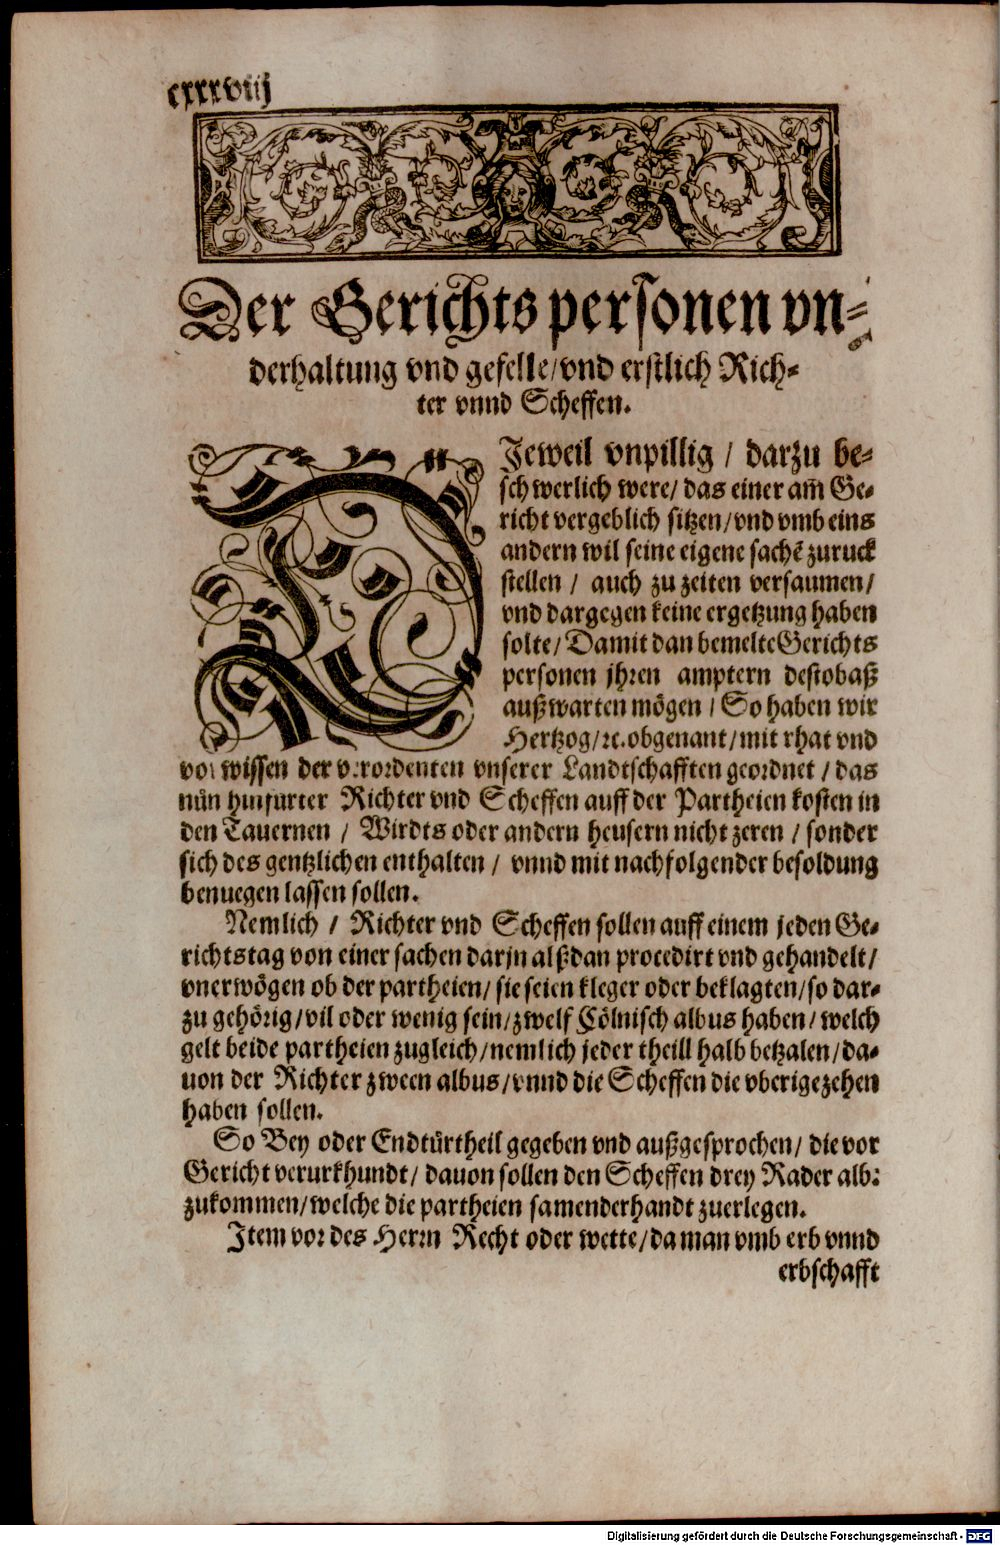 cxxxviij
Der Gerichts personen vn⸗
derhaltung vnd gefelle/vnd erstlich Rich⸗
ter vnnd Scheffen.
DJeweil vnpillig / darzu be⸗
schwerlich were/ das einer am̃ Ge⸗
richt vergeblich sitzen/vnd vmb eins
andern wil seine eigene sachẽ zuruck
stellen / auch zu zeiten versaumen/
vnd dargegen keine ergetzung haben
solte/ Damit dan bemelte Gerichts
personen jhren amptern destobaß
außwarten mögen / So haben wir
Hertzog/ꝛc. obgenant/mit rhat vnd
vorwissen der verordenten vnserer Landtschafften geordnet / das
nůn hinfurter Richter vnd Scheffen auff der Partheien kosten in
den Tauernen / Wirdts oder andern heusern nicht zeren / sonder
sich des gentzlichen enthalten / vnnd mit nachfolgender besoldung
benuegen lassen sollen.
Nemlich / Richter vnd Scheffen sollen auff einem jeden Ge⸗
richtstag von einer sachen darjn alßdan procedirt vnd gehandelt/
vnerwögen ob der partheien/ sie seien kleger oder beklagten/so dar⸗
zu gehörig/vil oder wenig sein/zwelf Cölnisch albus haben/welch
gelt beide partheien zugleich/nemlich jeder theill halb betzalen/da⸗
uon der Richter zween albus/vnnd die Scheffen die vberige zehen
haben sollen.
So Bey oder Endtůrtheil gegeben vnd außgesprochen/ die vor
Gericht verurkhundt/ dauon sollen den Scheffen drey Rader alb:
zukommen/welche die partheien samenderhandt zuerlegen.
Jtem vor des Herrn Recht oder wette/da man vmb erb vnnd
erbschafft
Digitalisierung gefördert durch die Deutsche Forschungsgemeinschaft - DFG